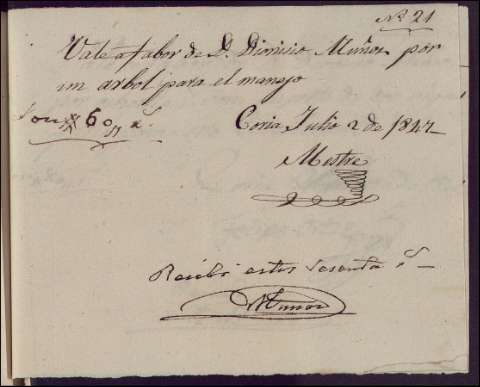 Nº 21
Vale a fabor de D. Dionicio Muños por
un arbol para el manejo
Son # 60 # r.s Coria Julio 2 de 1847
Mestre
Recibi estos sesenta r.s
DMuños